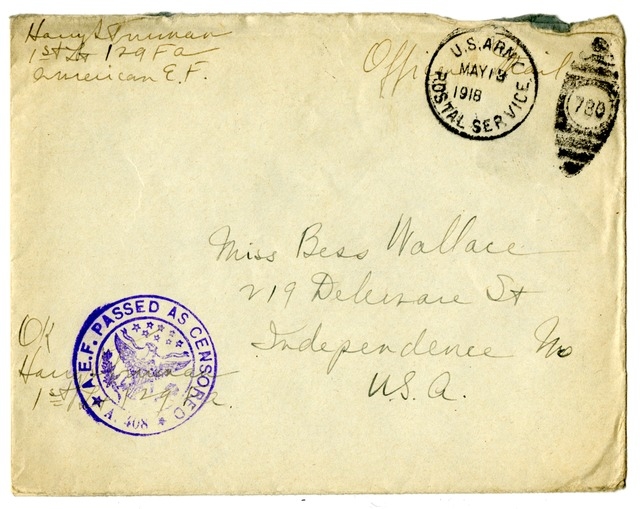 Harry S Truman
1st Lt 129 Fa
American E.F.
Officer's Mail
U.S. ARMY
MAY 18
1918
POSTAL SERVICE
780
Miss Bess Wallace
219 Delaware St
Independence Mo
U.S.A.
OK
Harry S Truman
1st Lt 129 Fa.
A.E.F. PASSED AS CENSORED
A. 408